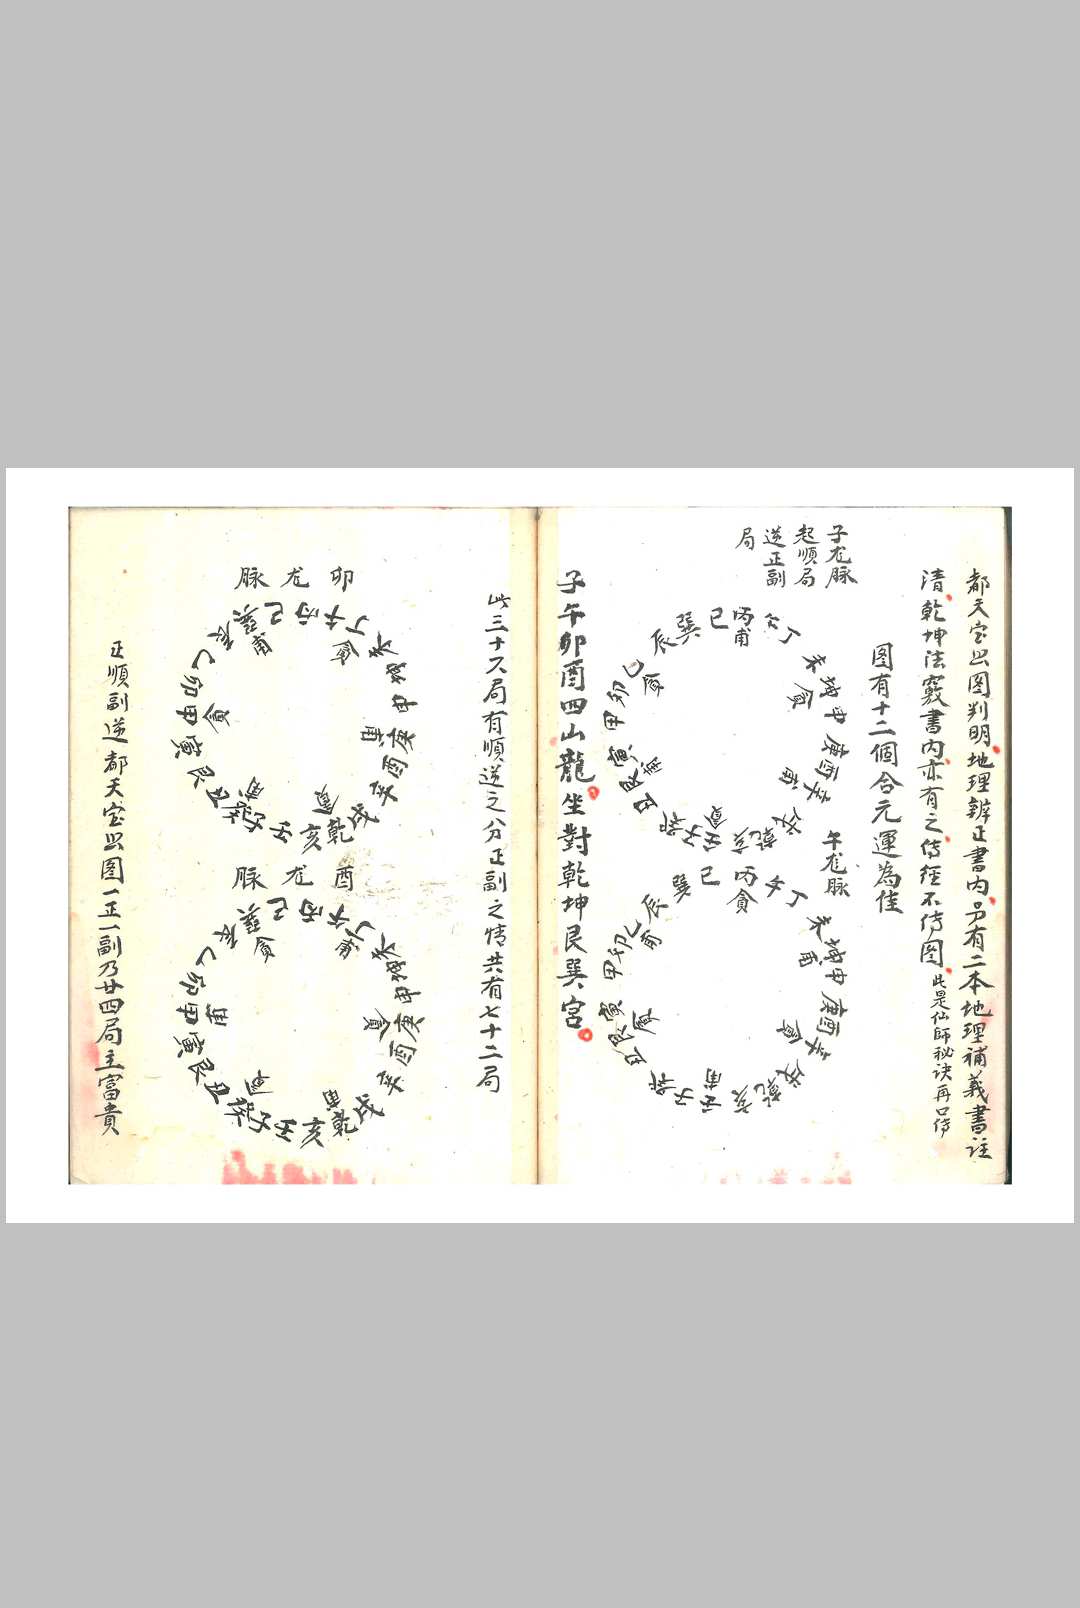 都天宝照图判明地理辨正書内另有二本地理補義書註
清乾坤法竅書内亦有之傳經不傳图此是仙師秘诀再口傳
图有十二個合元運為佳
子龙脉
起順局
逆正副
局
巳丙午丁未坤申庚酉辛戌乾亥壬子癸丑艮寅甲卯乙辰巽
午龙脉
巳丙午丁未坤申庚酉辛戌乾亥壬子癸丑艮寅甲卯乙辰巽
子午卯酉四山龍坐對乾坤艮巽宮
此三十六局有順逆之分正副之情共有七十二局
卯龙脉
巳丙午丁未坤申庚酉辛戌乾亥壬子癸丑艮寅甲卯乙辰巽
酉龙脉
巳丙午丁未坤申庚酉辛戌乾亥壬子癸丑艮寅甲卯乙辰巽
正順副逆都天宝照图一正一副乃廿四局主富貴